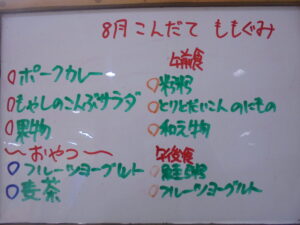 8月 こんだて ももぐみ
ポークカレー
もやしのこんぶサラダ
果物
おやつ
フルーツヨーグルト
麦茶
午前食
粥
とりとだいこんのにもの
和え物
午後食
鮭粥
フルーツヨーグルト